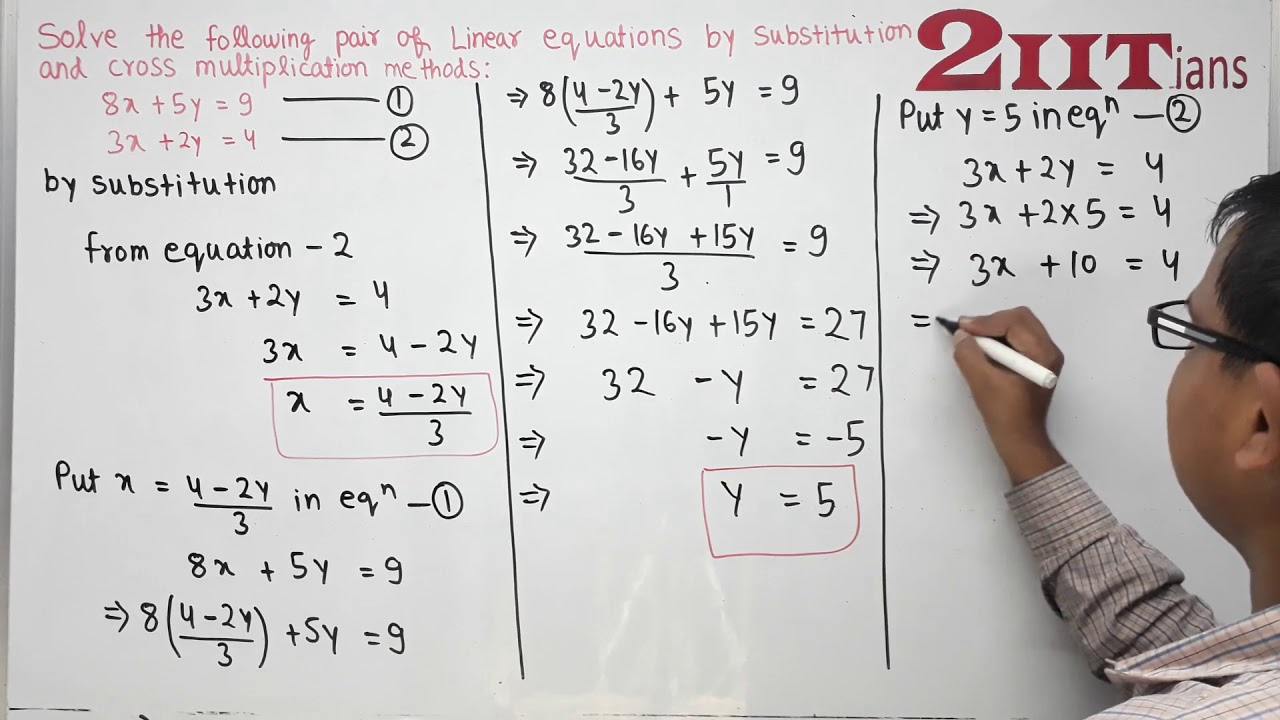 Solve the following pair of Linear equations by substitution
and cross multiplication methods:
8x + 5y = 9 ——— ①
3x + 2y = 4 ——— ②
by substitution
from equation - 2
3x + 2y = 4
3x = 4 - 2y
x = (4 - 2y)/3
Put x = (4 - 2y)/3 in eqⁿ - ①
8x + 5y = 9
⇒ 8((4 - 2y)/3) + 5y = 9
⇒ 8((4 - 2y)/3) + 5y = 9
⇒ (32 - 16y)/3 + 5y/1 = 9
⇒ (32 - 16y + 15y)/3 = 9
⇒ 32 - 16y + 15y = 27
⇒ 32 - y = 27
⇒ -y = -5
⇒ y = 5
2IITians
Put y = 5 in eqⁿ - ②
3x + 2y = 4
⇒ 3x + 2×5 = 4
⇒ 3x + 10 = 4
=